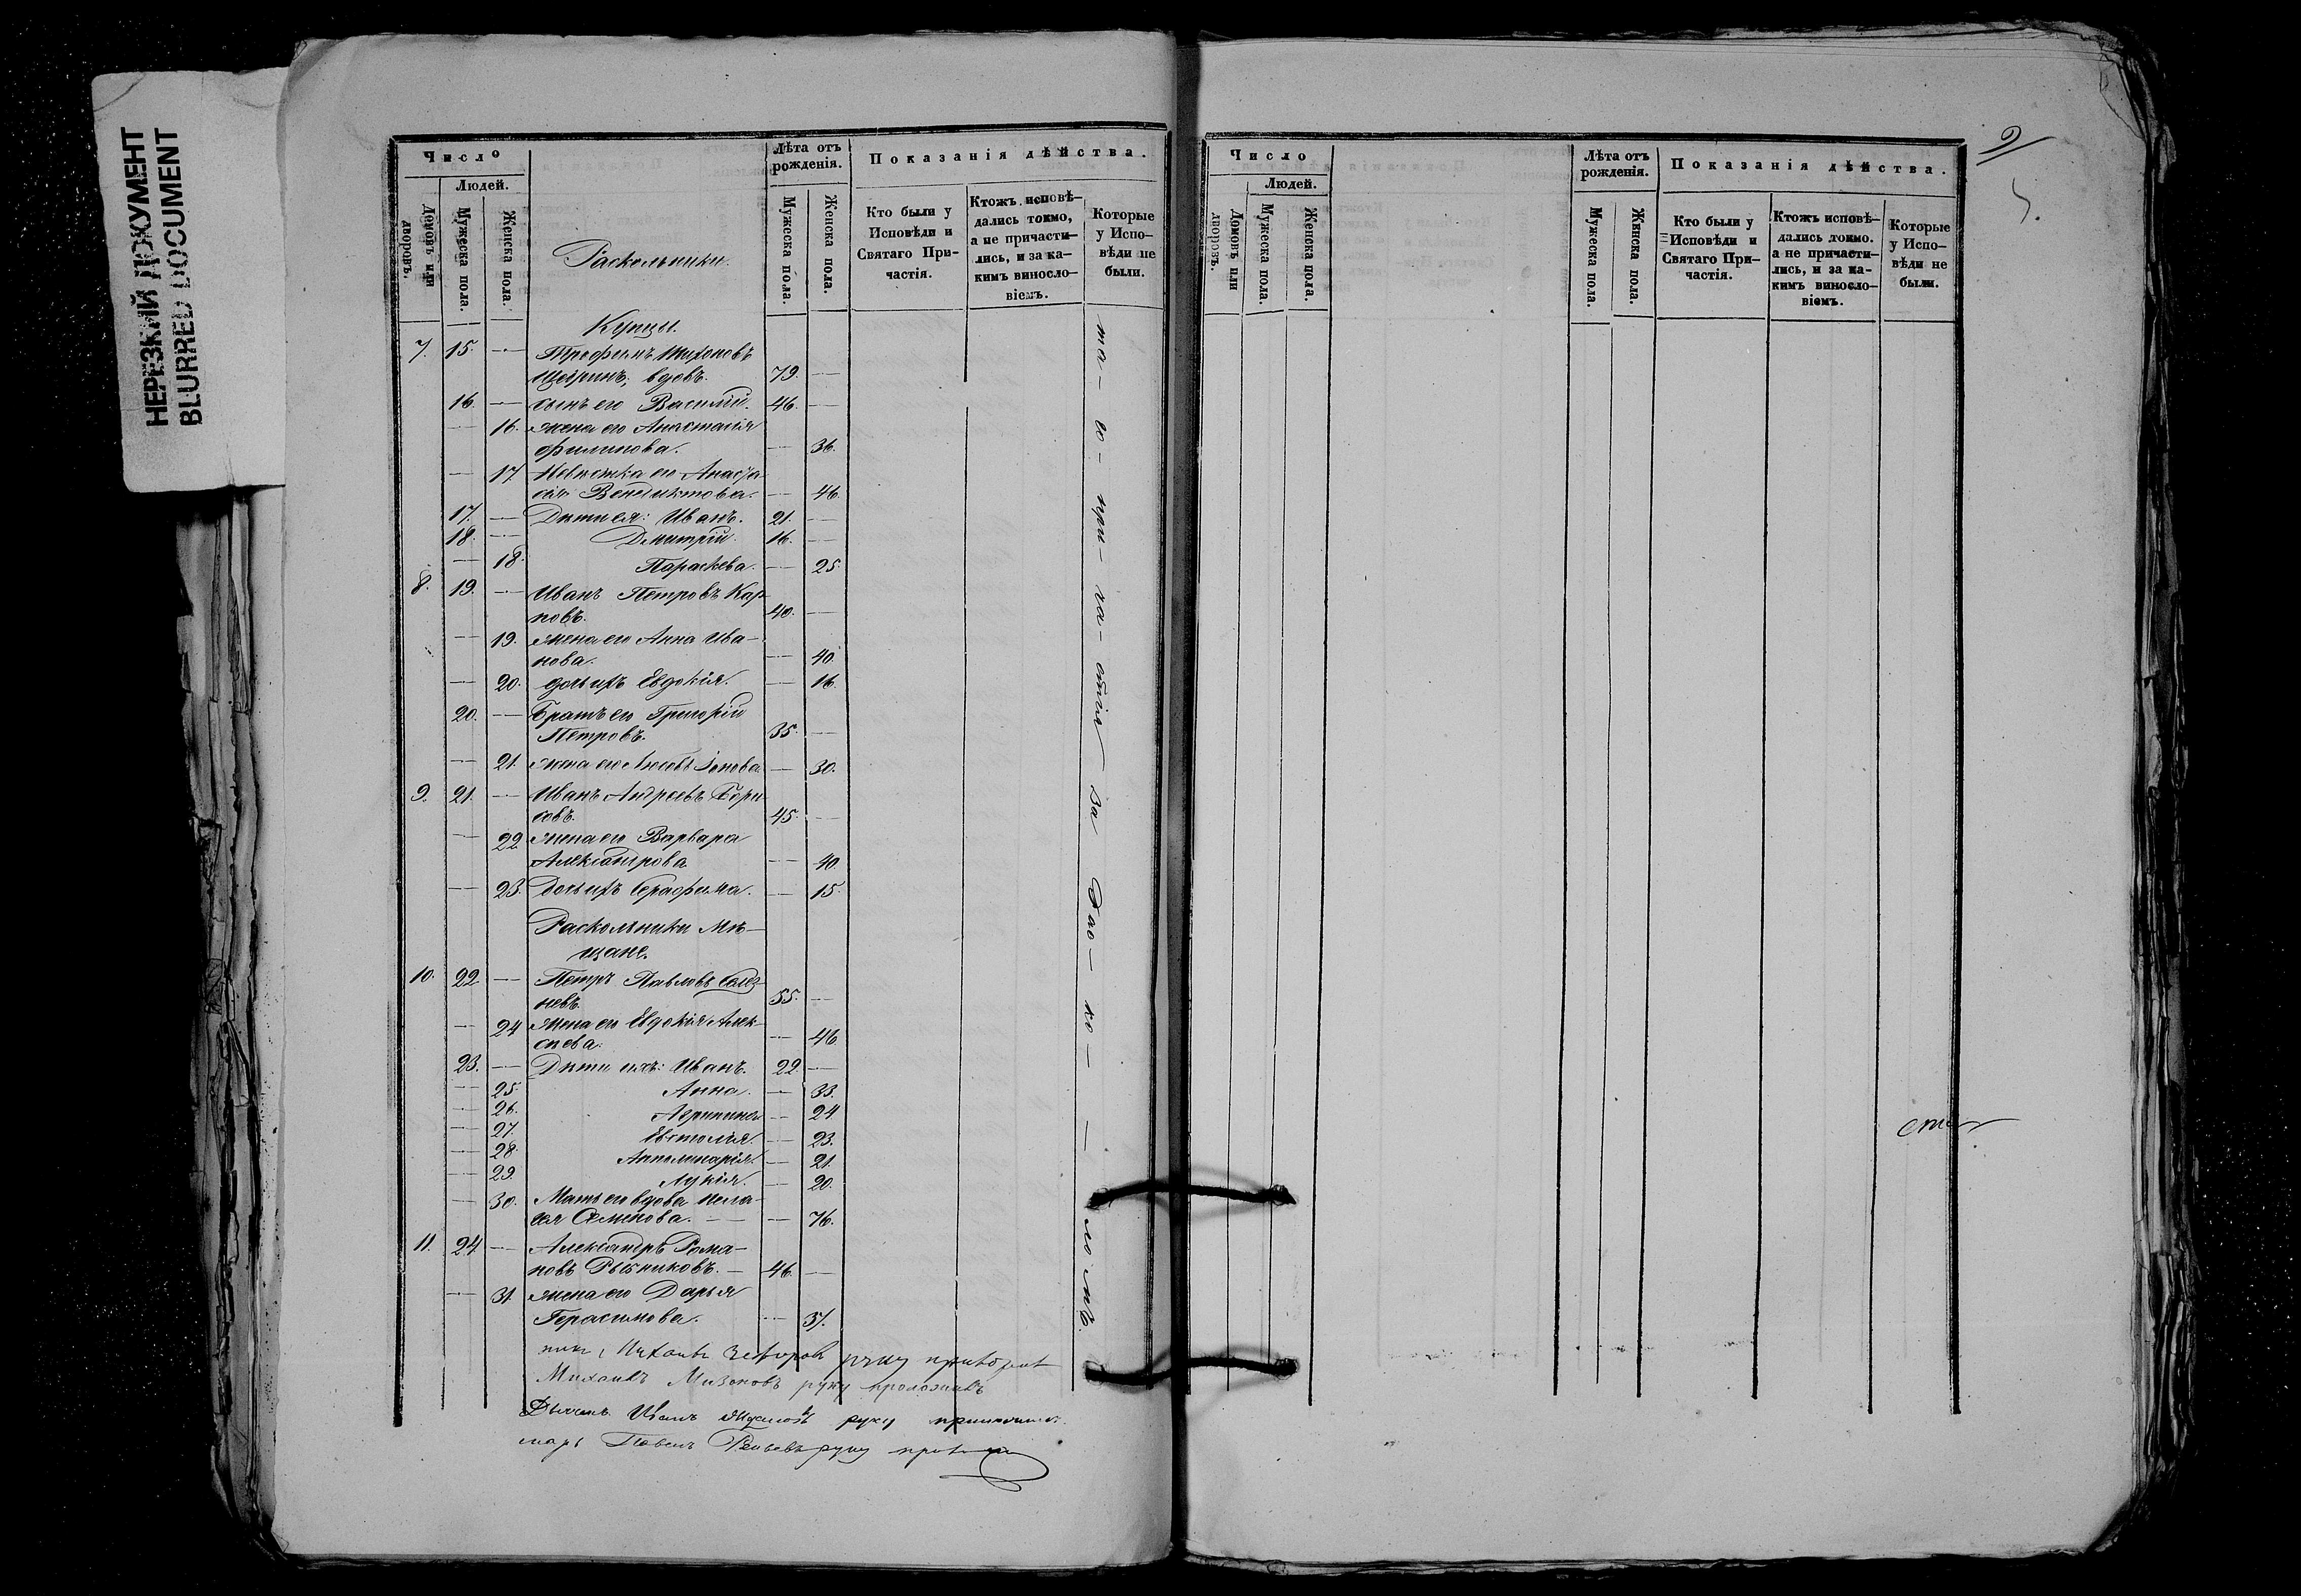 НЕРЕЗКИЙ ДОКУМЕНТ
BLURRED DOCUMENT
Число
Людей.
Домовъ или дворовъ.
Мужеска пола.
Женска пола.
Раскольники.
Лѣта отъ рожденія.
Мужеска пола.
Женска пола.
Показанія дѣйства.
Кто были у Исповѣди и Святаго Причастія.
Ктожъ исповѣдались токмо, а не причастились, и за какимъ винословіемъ.
Которые у Исповѣди не были.
Купцы.
7. 15. — Трофимъ Тихоновъ
вдовъ. 79. —
16. — сынъ его Василій. 46. —
— 16. жена его Анастасія
Филипова. — 36.
— 17 Невѣстка его Анаста-
сія Венедиктова. — 46.
17. — Дѣти ея: Иванъ. 21. —
18. — Дмитрій. 16. —
— 18. Параскева. — 25
8. 19. — Иванъ Петровъ Кар-
повъ. 40. —
— 19. жена его Анна Ива-
нова. — 40.
— 20. дочь ихъ Евдокія. — 16.
20. — Братъ его Григорій
Петровъ. 35. —
— 21. жена его — 30.
9. 21. — Иванъ Андреевъ Бори-
совъ. 45. —
— 22 жена его Варвара
Александрова — 40.
— 23. Дочь ихъ Серафима. — 15.
Раскольники Мѣ-
щане.
10. 22 — Петръ Павловъ
невъ. 55. —
— 24 жена его Евдокія Алек-
сѣева. — 46.
23. — Дѣти ихъ: Иванъ. 22 —
— 25. Анна. — 33.
— 26. Агрипина — 24
— 27. Евстолія. — 23.
— 28. Апполинарія. — 21.
— 29. Лукія. — 20.
— 30. Мать его вдова Пела-
гея Семенова. — 76.
11. 24. — Александръ Рома-
новъ 46. —
— 31. жена его Дарья
Герасимова. — 37.
руку
Михаилъ руку
Иванъ руку
Павелъ руку
за
Число
Людей.
Домовъ или дворовъ.
Мужеска пола.
Женска пола.
Лѣта отъ рожденія.
Мужеска пола.
Женска пола.
Показанія дѣйства.
Кто были у Исповѣди и Святаго Причастія.
Ктожъ исповѣдались токмо. а не причастились, и за какимъ винословіемъ.
Которые у Исповѣди не были.
9